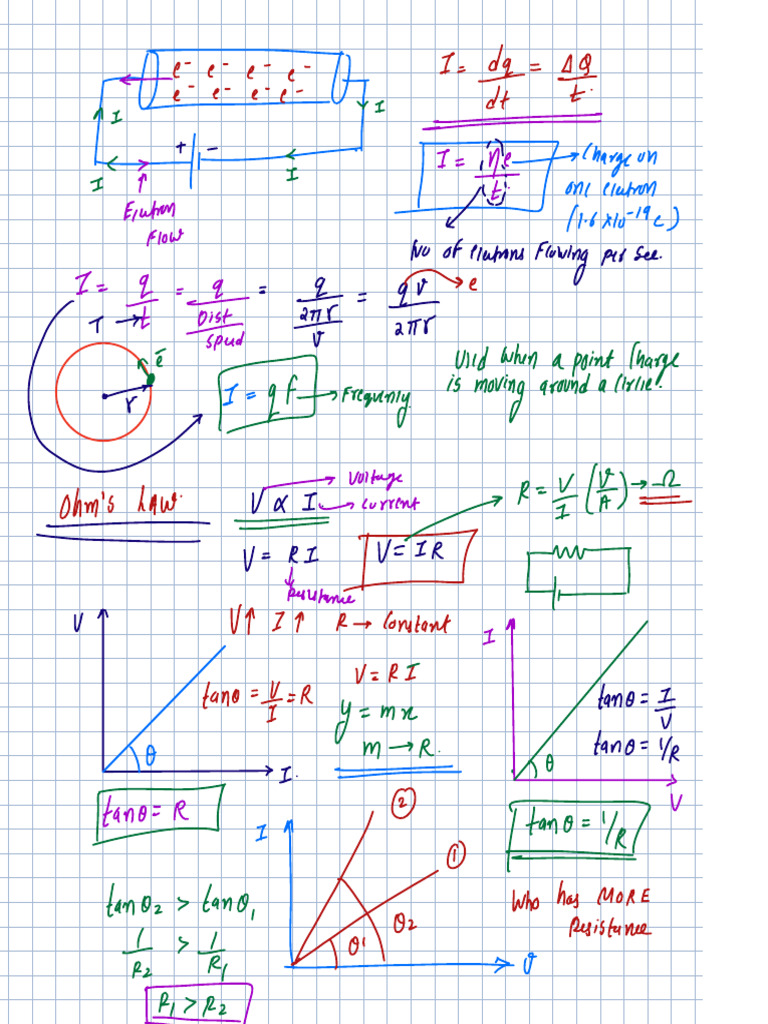 e⁻ e⁻ e⁻ e⁻
e⁻ e⁻ e⁻ e⁻
I = dq/dt = ΔQ/t
I
I
+ −
I
I
Electron
Flow
I = ne/t → Charge on
one electron
(1.6 x 10⁻¹⁹ c)
No of electrons Flowing per Sec.
I = q/t = q/(Dist/speed) = q/(2πr/v) = qv/2πr → e
T →
ē
r
I = qf → Frequency
Used when a point Charge
is moving around a Circle.
Ohm's Law.
V ∝ I
Voltage
Current
R = V/I (V/A) → Ω
V = RI
V = IR
Resistance
V↑ I↑ R → Constant
V
tanθ = V/I = R
V = RI
y = mx
m → R.
θ
I.
I
tanθ = I/V
tanθ = 1/R
θ
V
tanθ = R
tanθ = 1/R
I
②
①
θ1
θ2
V
tanθ₂ > tanθ₁
1/R₂ > 1/R₁
R₁ > R₂
Who has MORE
Resistance